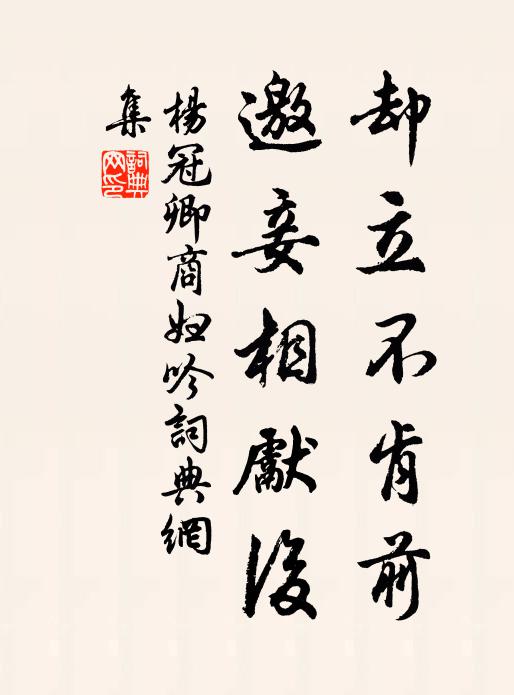 却立不肯前
邀妾相獻後
楊冠卿商婦吟詞典網
集
詞典
网印